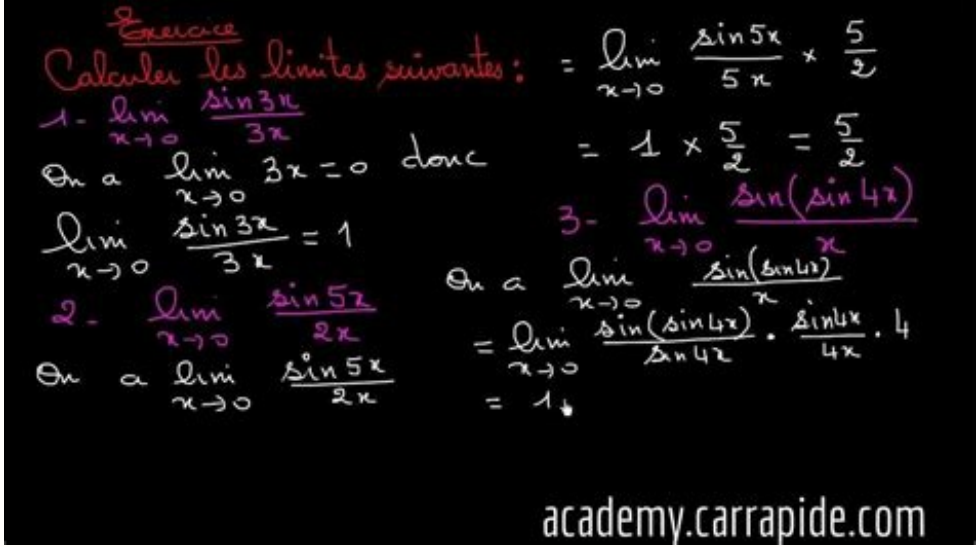 Exercice
Calculer les limites suivantes :
1- lim x→0 sin3x/3x
On a lim x→0 3x = 0 donc
lim x→0 sin3x/3x = 1
2- lim x→0 sin5x/2x
On a lim x→0 sin5x/2x
= lim x→0 sin5x/5x × 5/2
= 1 × 5/2 = 5/2
3- lim x→0 sin(sin4x)/x
On a lim x→0 sin(sin4x)/x
= lim x→0 sin(sin4x)/sin4x · sin4x/4x · 4
= 1
academy.carrapide.com